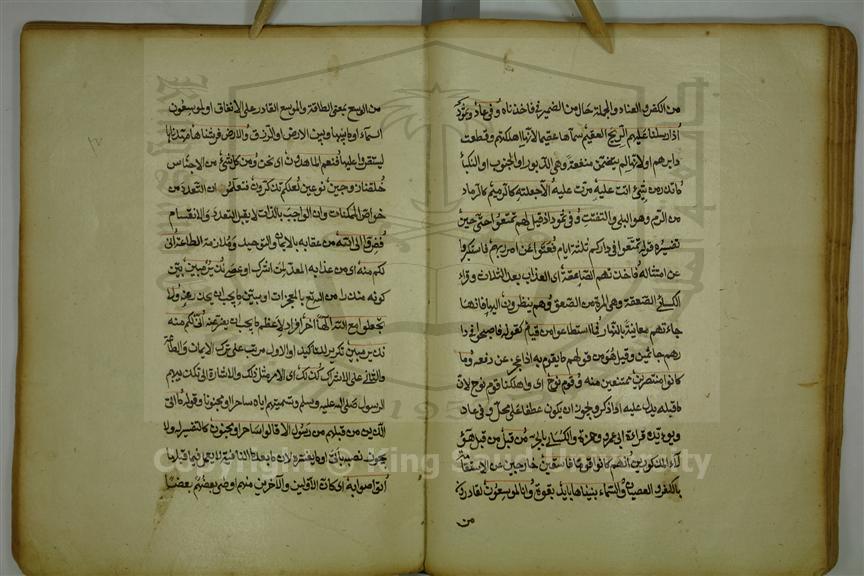 من الكفر والعناد والجملة حال من الضمير في فاخذناه وفى عاد وثمود
اذ ارسلنا عليهم الريح العقيم سماها عقيما لانها اهلكتهم وقطعت
دابرهم او لانها لم يتضمن منفعة وهي الدبور او الجنوب او النكباء
ما تذر من شيء اتت عليه مرت عليه الا جعلته كالرميم كالرماد
من الرم وهو البلى والتفتت وفى ثمود اذ قيل لهم تمتعوا حتى حين
تفسيره قوله تمتعوا فى داركم ثلثة ايام فعتوا عن امر ربهم فاستكبروا
عن امتثاله فاخذتهم الصاعقة اى العذاب بعد الثلاث وقراء
الكسائي الصعقة وهى المرة من الصعق وهم ينظرون اليها فانها
جاءتهم معاينة بالنهار فما استطاعوا من قيام كقوله فاصبحوا فى دا
رهم جاثمين وقيل هو من قولهم ما يقوم به اذا عجز عن دفعه وما
كانوا منتصرين ممتنعين منه وقوم نوح اى واهلكنا قوم نوح لان
ما قبله يدل عليه او اذكر ويجوز ان يكون عطفا على محل وفى عاد
ويؤيده قراءة ابى عمرو وحمزة والكسائى بالجر من قبل من قبل هؤ
لاء المذكورين انهم كانوا قوما فاسقين خارجين عن الاستقامة
بالكفر والعصيان والسماء بنيناها بايد بقوة وانا لموسعون لقادرون
من
من الوسع بمعنى الطاقة والموسع القادر على الانفاق او لموسعون
السماء او ما بينها وبين الارض او الرزق والارض فرشناها مهدناها
ليستقروا عليها فنعم الماهدون اى نحن ومن كل شئ من الاجناس
خلقنا زوجين نوعين لعلكم تذكرون فتعلمون ان التعدد من
خواص الممكنات وان الواجب بالذات لا يقبل التعدد والانقسام
ففروا الى الله من عقابه بالايمان والتوحيد وملازمة الطاعة انى
لكم منه اى من عذابه المعد لمن اشرك او عصى نذير مبين بين
كونه منذرا من الله بالمعجزات او مبين ما يجب ان يحذر عنه ولا
تجعلوا مع الله الها اخر افراد لاعظم ما يجب ان يفر منه انى لكم منه
نذير مبين تكرير للتاكيد او الاول مرتب على ترك الايمان والطاعة
والثانى على الاشراك كذلك اى الامر مثل ذلك والاشارة الى تكذيبهم
الرسول صلى الله عليه وسلم وتسميتهم اياه ساحرا او مجنونا وقوله ما اتى
الذين من قبلهم من رسول الا قالوا ساحر او مجنون كالتفسير له ولا
يجوز نصبه باتى او ما يفسره لان ما بعد ما النافية لا يعمل فيما قبلها
اتواصوا به اى كان الاولين والاخرين منهم اوصى بعضهم بعضا
Copyright © King Saud University